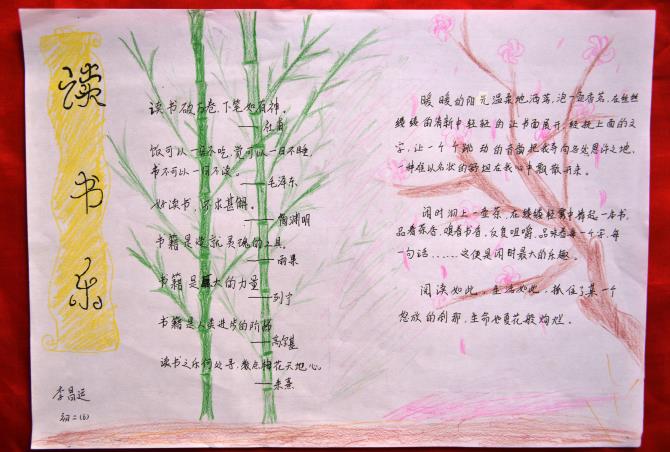 读书乐
读书破万卷,下笔如有神。
——杜甫
饭可以一日不吃,觉可以一日不睡,
书不可以一日不读。
——毛泽东
好读书,不求甚解。
——陶渊明
书籍是造就灵魂的工具。
——雨果
书籍是最大的力量
——列宁
书籍是人类进步的阶梯
——高尔基
读书之乐何处寻,数点梅花天地心。
——朱熹
李昌远
初二(6)
暖暖的阳光温柔地洒落,泡一壶香茗,在丝丝
缕缕的清新中轻轻的让书面展开,轻按上面的文
字,让一个个跳动的音韵把我导向
一种难以名状的舒坦在我心中飘散开来。
闲时泡上一壶茶,在缕缕轻雾中捧起一本书,
品着茶香,嗅着书香,反复咀嚼,品味着每一个字,每
一句话……这便是闲时最大的乐趣。
阅读如此,生活如此,抓住了某一个
怒放的刹那,生命也更花般绚烂。